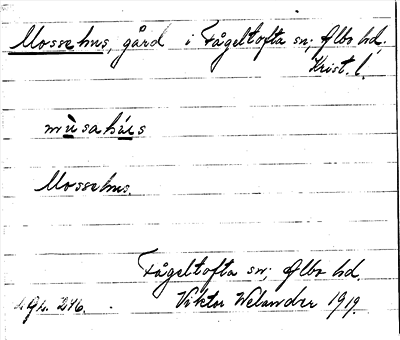 Mossahus, gård i Fågeltofta sn; Albo hd,
Krist. l.
mùsahús
Mossahus.
Fågeltofta sn; Albo hd.
Viktor Welander 1919.